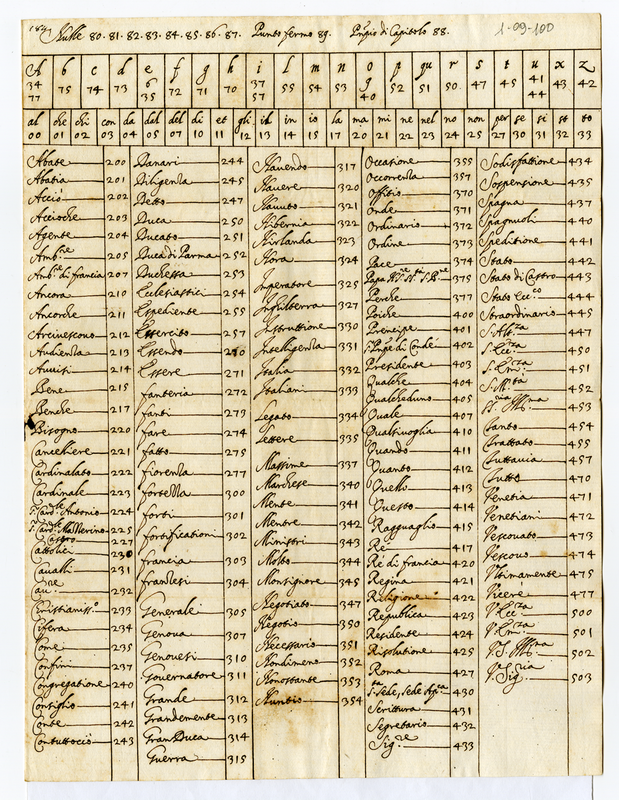 Nulle 80. 81. 82. 83. 84. 85. 86. 87. Punto fermo 89. Pnpio di Capitolo 88. 1-09-100
A b c d e f g h i l m n o p qu r s t u x z
34 77 75 74 73 6 35 72 71 70 37 57 55 54 53 9 40 52 51 50. 47 45 41 44 43 42
al che chi con da del del di et gli il in io la ma mi ne nel no non per se si st to
00 01 02 03 04 05 07 10 11 12 13 14 15 17 20 21 22 23 24 25 27 30 31 32 33
Abate 200
Abatia 201
Acciò 202
Accioche 203
Agente 204
Amb.re 205
Amb.re di francia 207
Ancora 210
Ancorche 211
Arcivescovo 212
Audienza 213
Avvisi 214
Bene 215
Benche 217
Bisogno 220
Cancelliere 221
Cardinalato 222
Cardinale 223
S.r Card.le Antonio 224
S.r Card.le Mazzerino 225
Castro 227
Cattolici 230
Cavalli 231
Cav.re 232
Cristianiss.o 233
Cifera 234
Come 235
Confini 237
Congregatione 240
Consiglio 241
Conte 242
Contuttociò 243
Danari 244
Diligenza 245
Detto 247
Duca 250
Ducato 251
Duca di Parma 252
Duchessa 253
Ecclesiastici 254
Espediente 255
Essercito 257
Essendo 270
Essere 271
fanteria 272
fanti 273
fare 274
fatto 275
fiorenza 277
fortezza 300
forti 301
fortificationi 302
francia 303
franzesi 304
Generale 305
Genova 307
Genovesi 310
Governatore 311
Grande 312
Grandemente 313
Gran Duca 314
Guerra 315
Havendo 317
Havere 320
Havuto 321
Hibernia 322
Hirlanda 323
Hora 324
Imperatore 325
Inghilterra 327
Instruttione 330
Intelligenza 331
Italia 332
Italiani 333
Legato 334
Lettere 335
Massime 337
Marchese 340
Mente 341
Mentre 342
Ministri 343
Molto 344
Monsignore 345
Negotiato 347
Negotio 350
Necessario 351
Nondimeno 352
Nonostante 353
Nuntio 354
Occasione 355
Occorrenza 357
Offitio 370
Onde 371
Ordinario 372
Ordine 373
Pace 374
Papa N.re S.re 375
Perche 377
Poiche 400
Prencipe 401
S. Pnpe di Condé 402
Presidente 403
Qualche 404
Qualcheduno 405
Quale 407
Qualsivoglia 410
Quando 411
Quanto 412
Quello 413
Questo 414
Ragguaglio 415
Re 417
Re di francia 420
Regina 421
Religione 422
Republica 423
Residente 424
Risolutione 425
Roma 427
S.ta Sede, Sede Ap.ca 430
Scrittura 431
Segretario 432
Sig.re 433
Sodisfattione 434
Sospensione 435
Spagna 437
Spagnuoli 440
Speditione 441
Stato 442
Stato di Castro 443
Stato Ecc.co 444
Straordinario 445
S. Alt.za 447
S. Ecc.za 450
S. Em.za 451
S. M.tà 452
453
Tanto 454
Trattato 455
Tuttavia 457
Tutto 470
Venetia 471
Venetiani 472
Vescovato 473
Vescovo 474
Ultimamente 475
Vicere 477
V. Ecc.za 500
V. Em.za 501
V. S. Ill.ma 502
V. Sig.ria 503